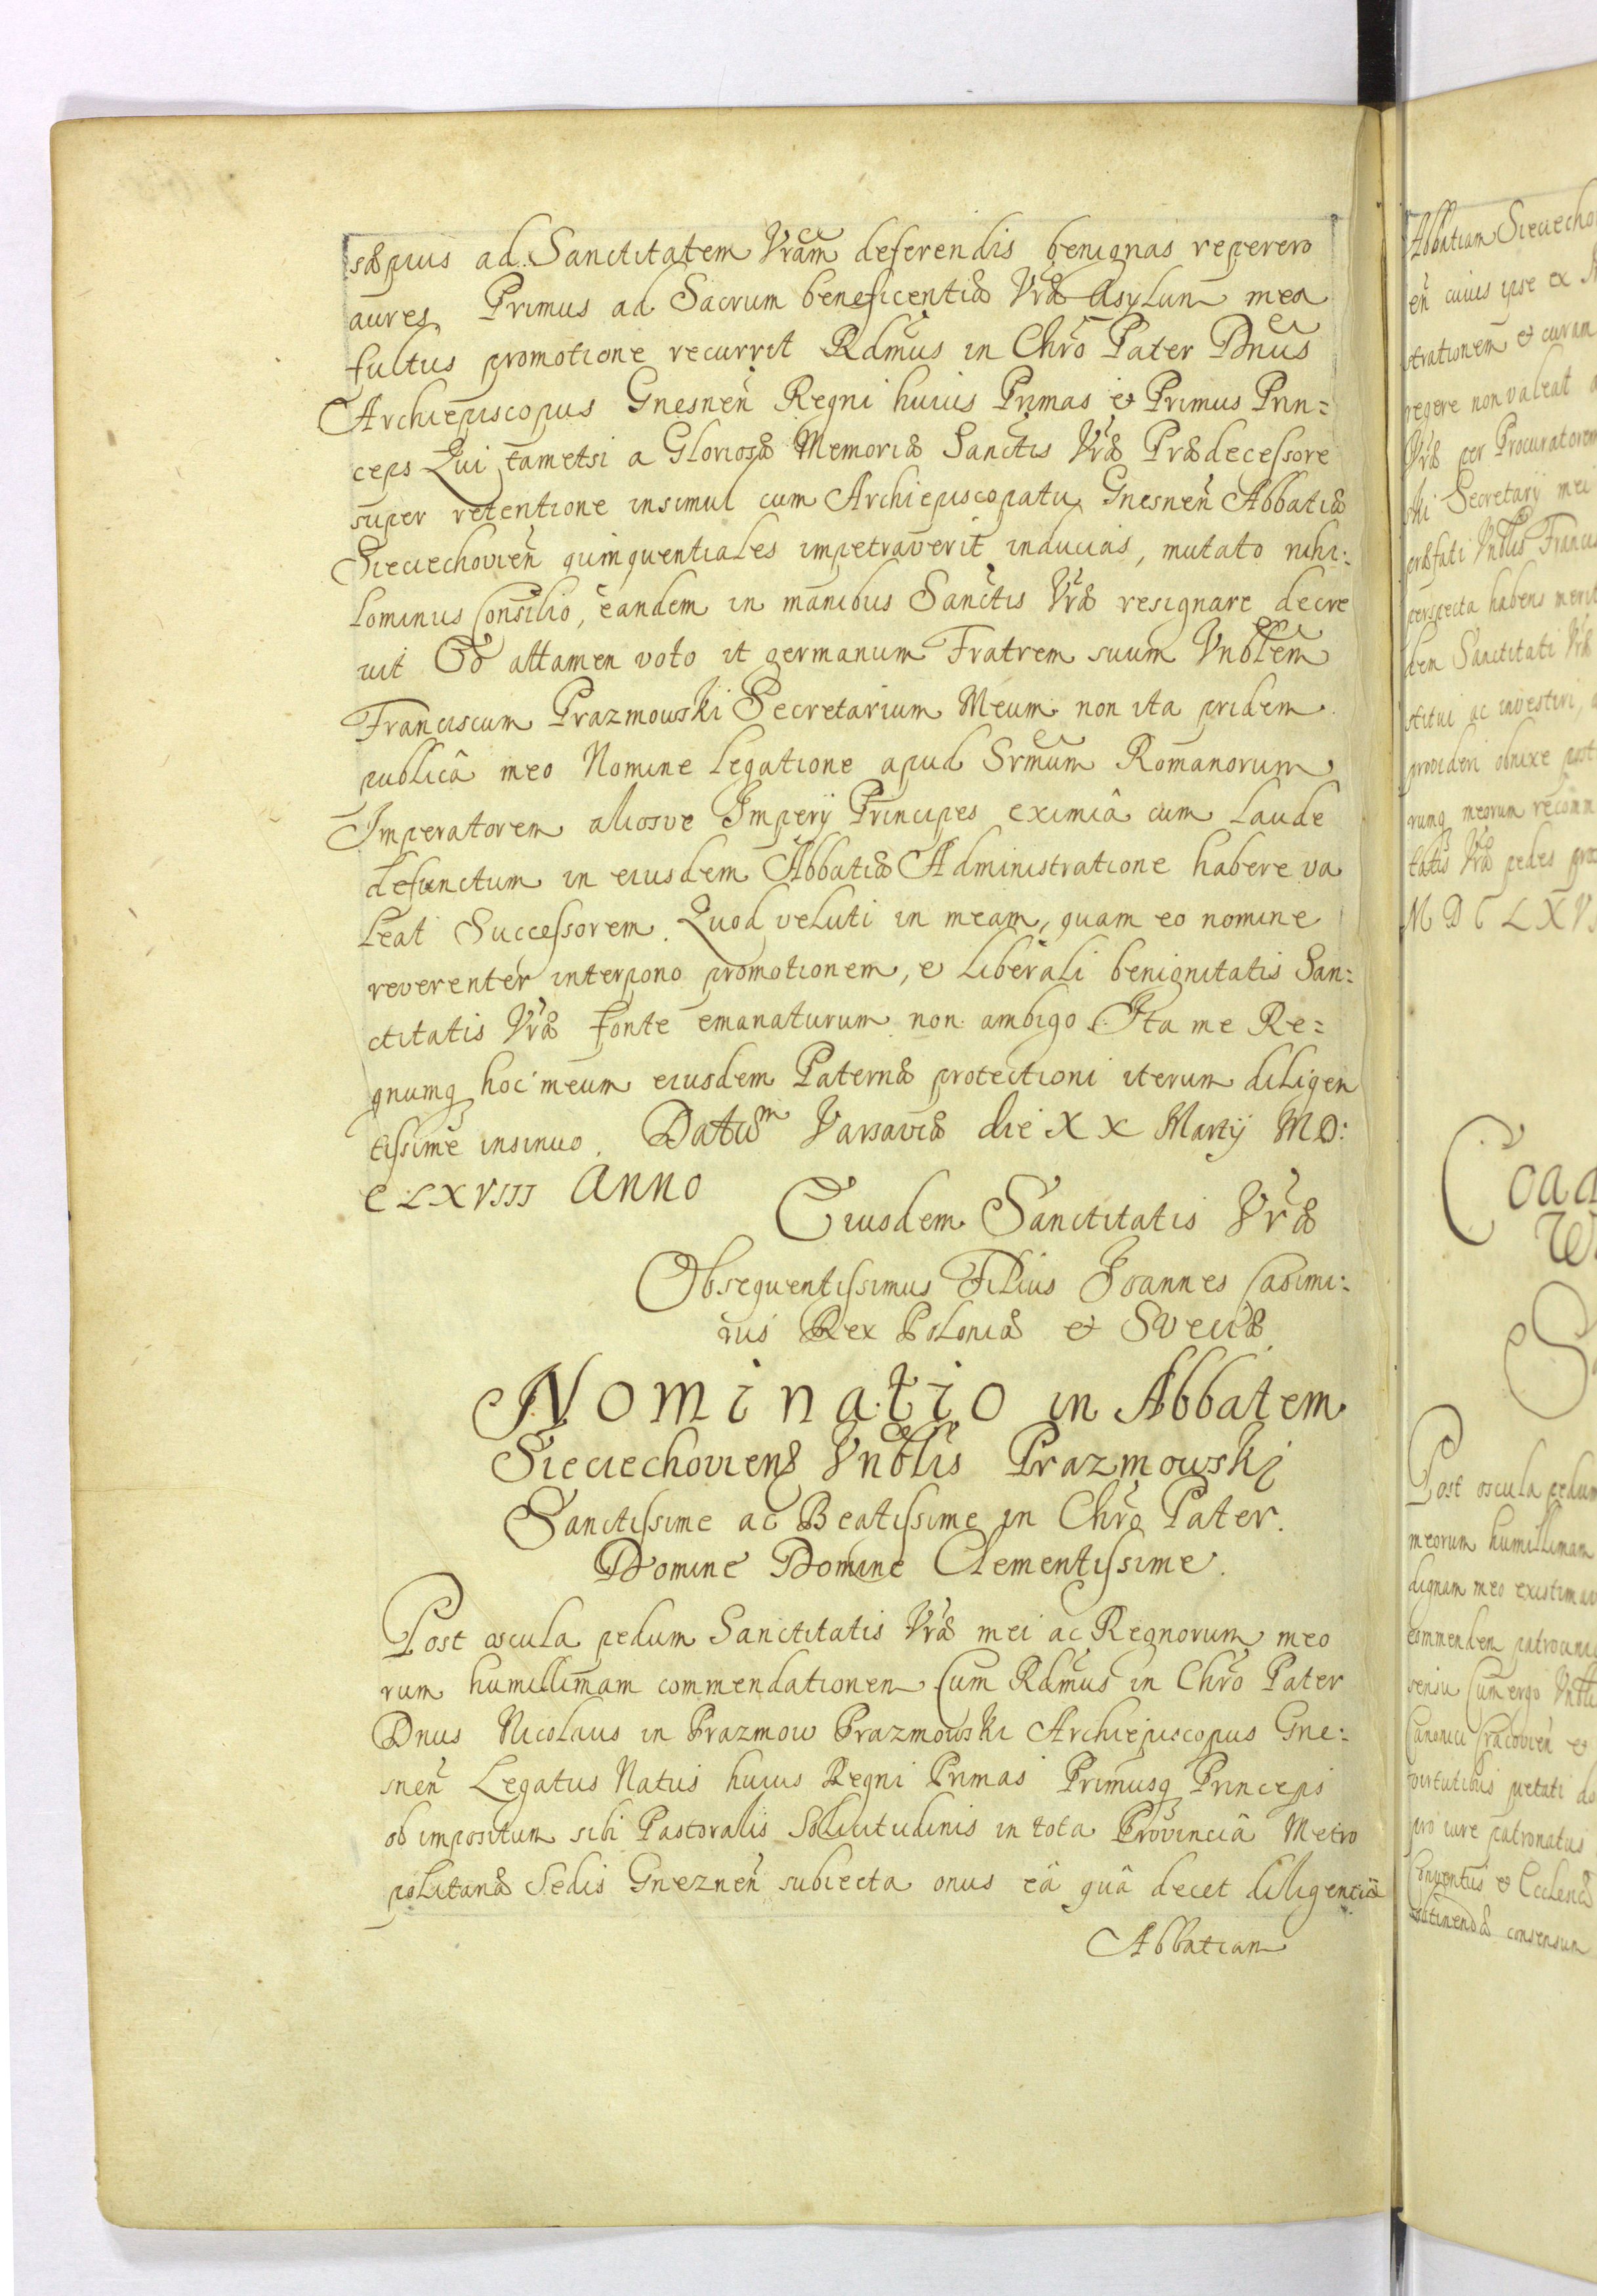 sæpius ad Sanctitatem Vram deferendis benignas reperero
aures, Primus ad Sacrum beneficentiæ Vræ Asylum mea
fultus promotione recurrit Rdmus in Chro Pater Dnus
Archiepiscopus Gnesnen Regni huius Primas et Primus Prin=
ceps Qui tametsi a Gloriosæ Memoriæ Sanctis Vræ Prædecessore
super retentione insimul cum Archiepiscopatu Gnesnen Abbatiæ
Sieciechovien quinquentiales impetraverit inducias, mutato nihi:
lominus Consilio, eandem in manibus Sanctis Vræ resignare decre
vit Eo attamen voto ut germanum Fratrem suum Vnblem
Franciscum Prazmowski Secretarium Meum non ita pridem
publicâ meo Nomine Legatione apud Srmum Romanorum
Imperatorem aliosve Imperÿ Principes eximiâ cum Laude
defunctum in eiusdem Abbatiæ Administratione habere va
leat Successorem. Quod veluti in meam, quam eo nomine
reverenter interpono promotionem, e liberali benignitatis San:
ctitatis Vræ fonte emanaturum non ambigo. Ita me Re=
gnumq hoc meum eiusdem Paternæ protectioni iterum diligen
tissime insinuo. Datum Varsaviæ die XX Martÿ MD:
CLXVIII Anno
Eiusdem Sanctitatis Vræ
Obsequentissimus Filius Joannes Casimi:
rus Rex Poloniæ et Sveciæ
Nominatio in Abbatem
Sieciechoviens Vnblis Prazmowski
Sanctissime ac Beatissime in Chro Pater.
Domine Domine Clementissime.
Post oscula pedum Sanctitatis Vræ mei ac Regnorum meo
rum humillimam commendationem Cum Rdmus in Chro Pater
Dnus Nicolaus in Prazmow Prazmowski Archiepiscopus Gne:
snen Legatus Natus huius Regni Primas Primusq Princeps
ob impositum sibi Pastoralis Solicitudinis in tota Provinciâ Metro
politanæ Sedis Gneznen subiecta onus eâ quâ decet diligentiâ
Abbatiam
Abbatiam Sieciecho
en cuius ipse ex
strationem et curam
regere non valeat
Vræ per Procuratorem
Secretarÿ mei
præfati Vnblis Francis
perspecta habens merit
dem Sanctitati Vræ
stitui ac investiri,
provideri obnixe post
rumq meorum recomm
tatis Vræ pedes pro
MDCLXV
Coad
Post oscula pedum
meorum humillimam
dignam meo existimav
commendem patrocini
sensu Cum ergo Vnbli
Canonici Cracovien et
virtutibus pietati
pro iure patronatus
Conventus et Ecclesiæ
consensum